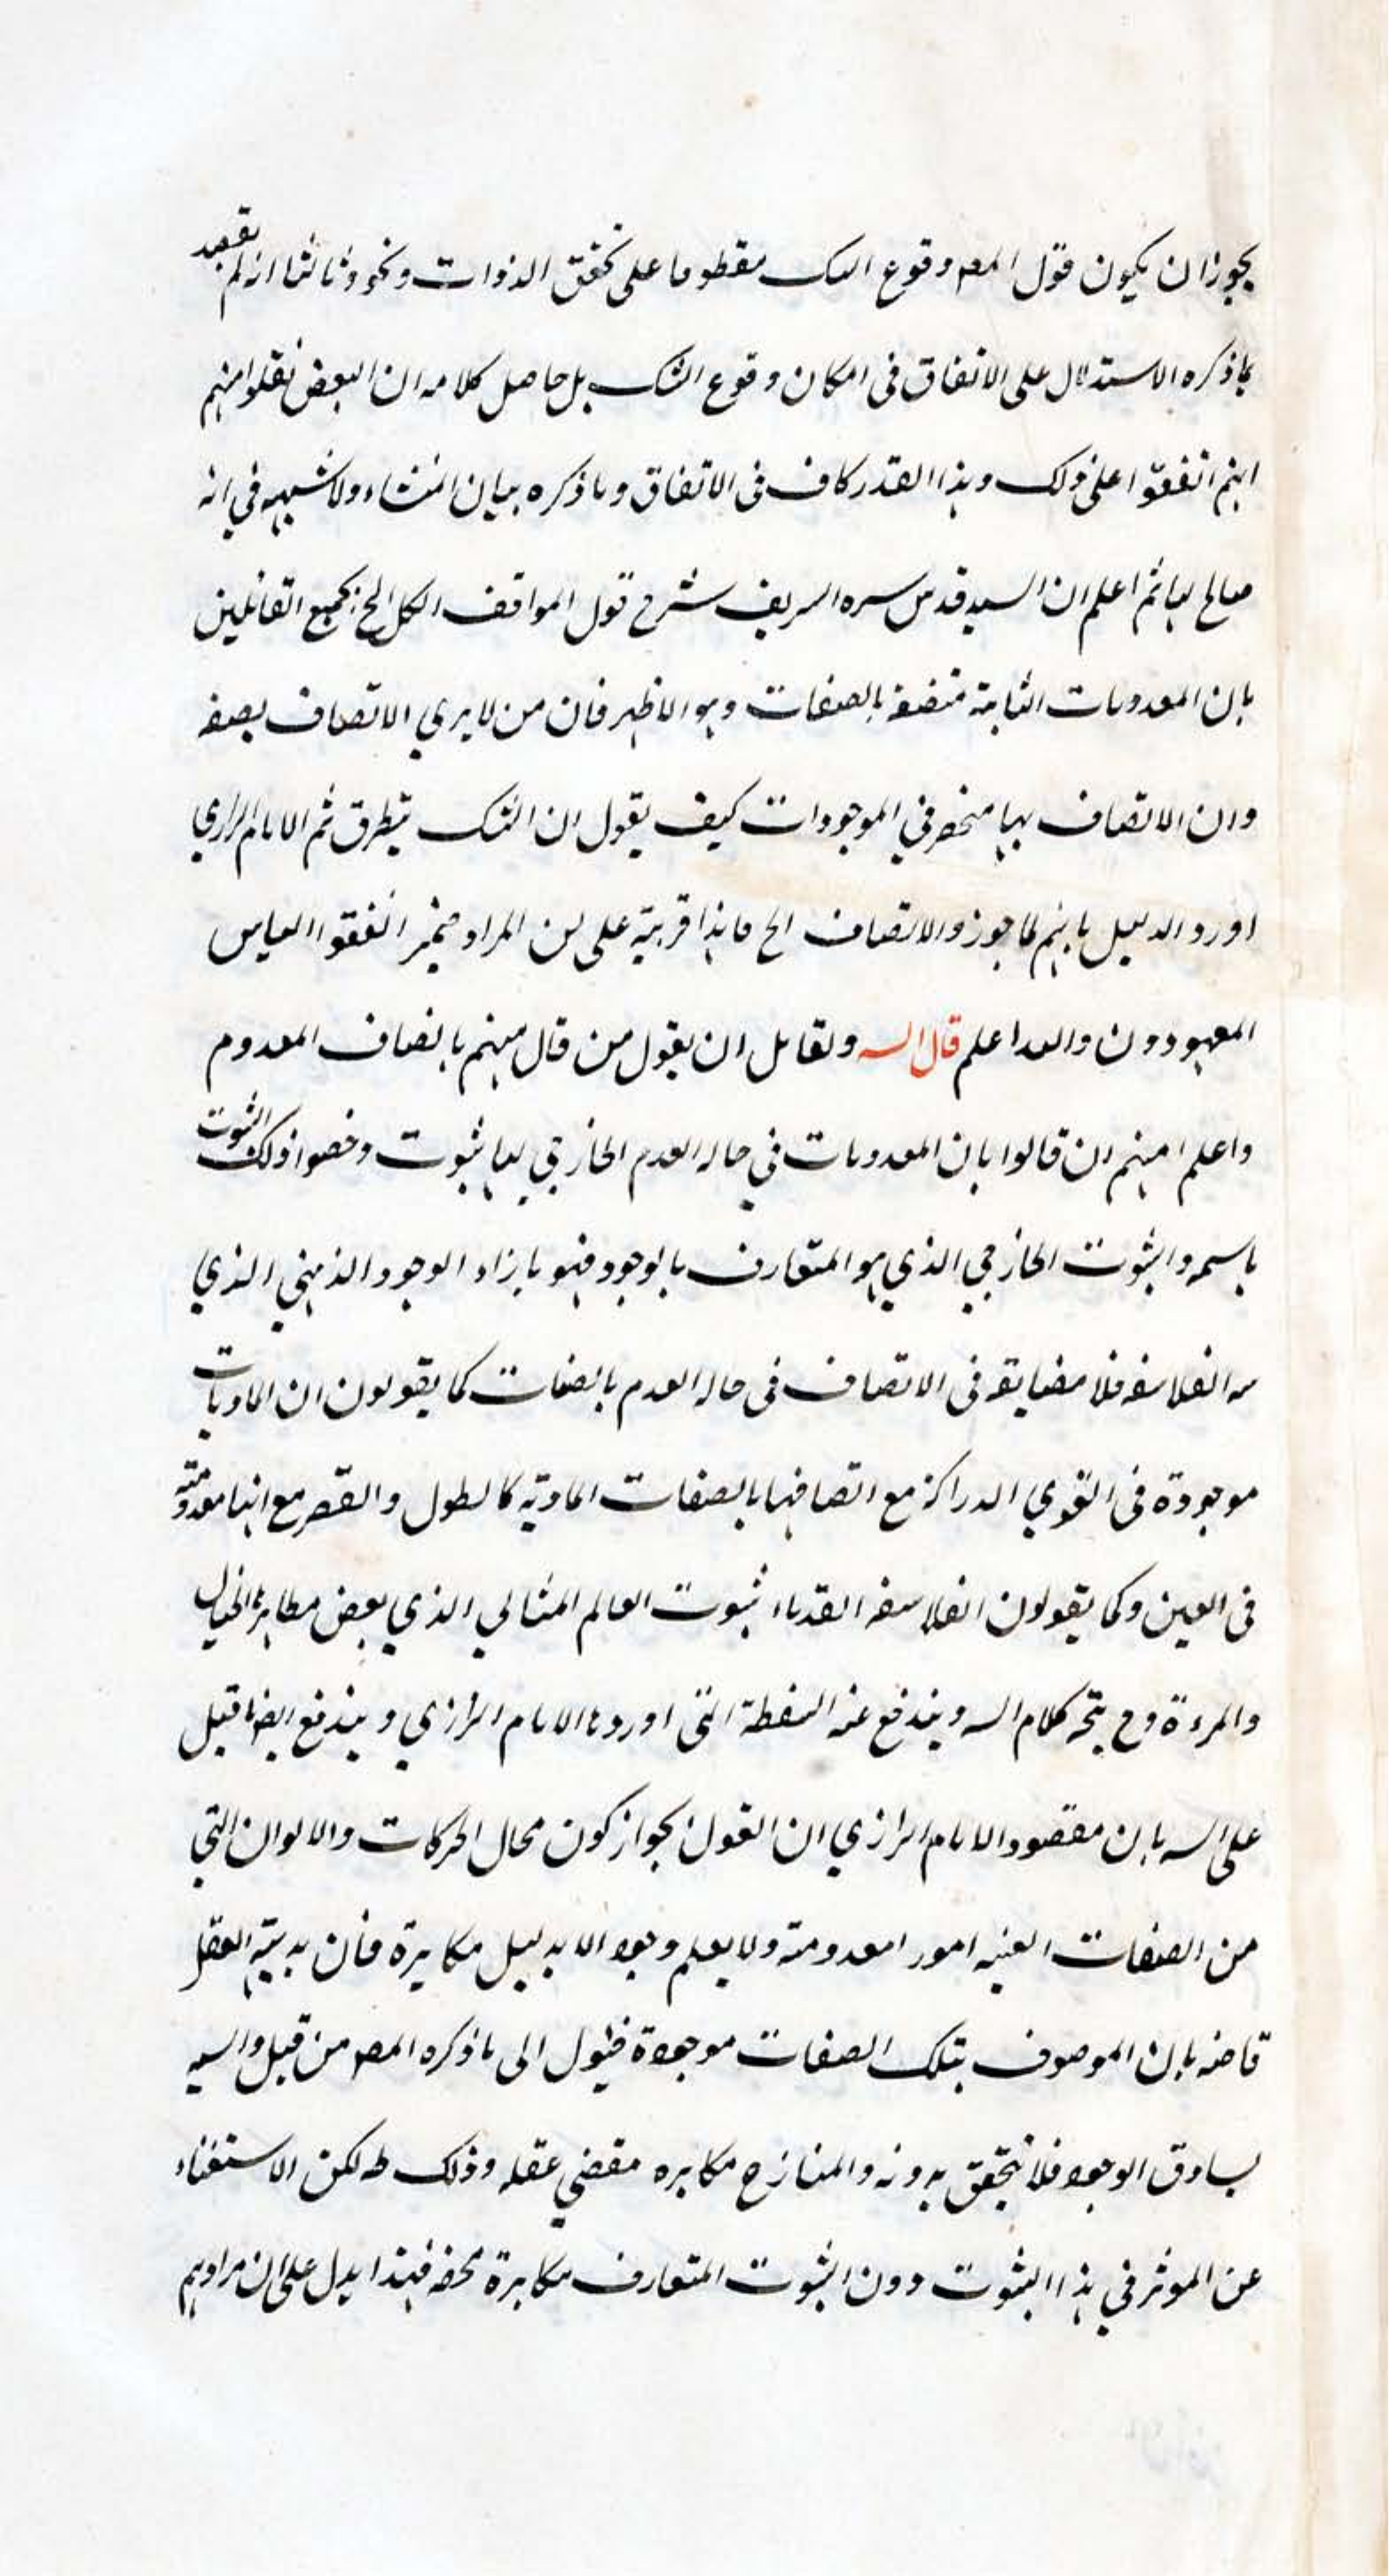 يجوز ان يكون قول المصه وقوع الشك مقطوعا على تحقق الذوات ونحوه وثالثا انه لم يقصد
بما ذكره الاستدلال على الاتفاق فى امكان وقوع الشك بل حاصل كلامه ان البعض نقلوا منهم
انهم اتفقوا على ذلك وهذا القدر كاف فى الاتفاق وما ذكره بيان المنشاء ولا شبهه في انه
صالح لها ثم اعلم ان السيد قدس سره الشريف شرح قول المواقف الكل الخ بجميع القائلين
بان المعدومات الثابتة متصفة بالصفات وهو الاظهر فان من لا يري الاتصاف بصفه
وان الاتصاف بها منحصر في الموجودات كيف يقول ان الشك يتطرق ثم الامام الرازي
اورد الدليل بانهم لما جوزوا الاتصاف الخ فهذا قرينة على ان المراد ضمير اتفقوا الناس
المعهودون والله اعلم قال السه ولقائل ان يقول من قال منهم باتصاف المعدوم
واعلم انهم ان قالوا بان المعدومات في حاله العدم الخارجي لها ثبوت وخصوا ذلك الثبوت
باسم والثبوت الخارجي الذي هو المتعارف بالوجود فهو بازاء الوجود الذهني الذي
الفلاسفه فلا مضايقه فى الاتصاف فى حاله العدم بالصفات كما يقولون ان الماديات
موجودة فى القوي الدراكة مع اتصافها بالصفات الماديه كالطول والقصر مع انها معدومة
فى العين وكما يقولون الفلاسفه القدماء ثبوت العالم المثالي الذي بعض مظاهره الخيال
والمرءة وح يتجه كلام السه ويندفع عنه السفطة التى اوردها الامام الرازي ويندفع ايضا ما قيل
على السه بان مقصود الامام الرازي ان القول بجواز كون محال الحركات والالوان التي
من الصفات العينيه امورا معدومة ولا يعلم وجوده الا بدليل مكابرة فان بديهة العقل
قاضه بان الموصوف بتلك الصفات موجودة فيؤل الى ما ذكره المصه من قبل والسيه
يساوق الوجود فلا يتحقق بدونه والمنازع مكابره مقضي عقله وذلك ظه لكن الاستغناء
عن الموثر في هذا الثبوت دون الثبوت المتعارف مكابرة محضه فهذا يدل على ان مرادهم